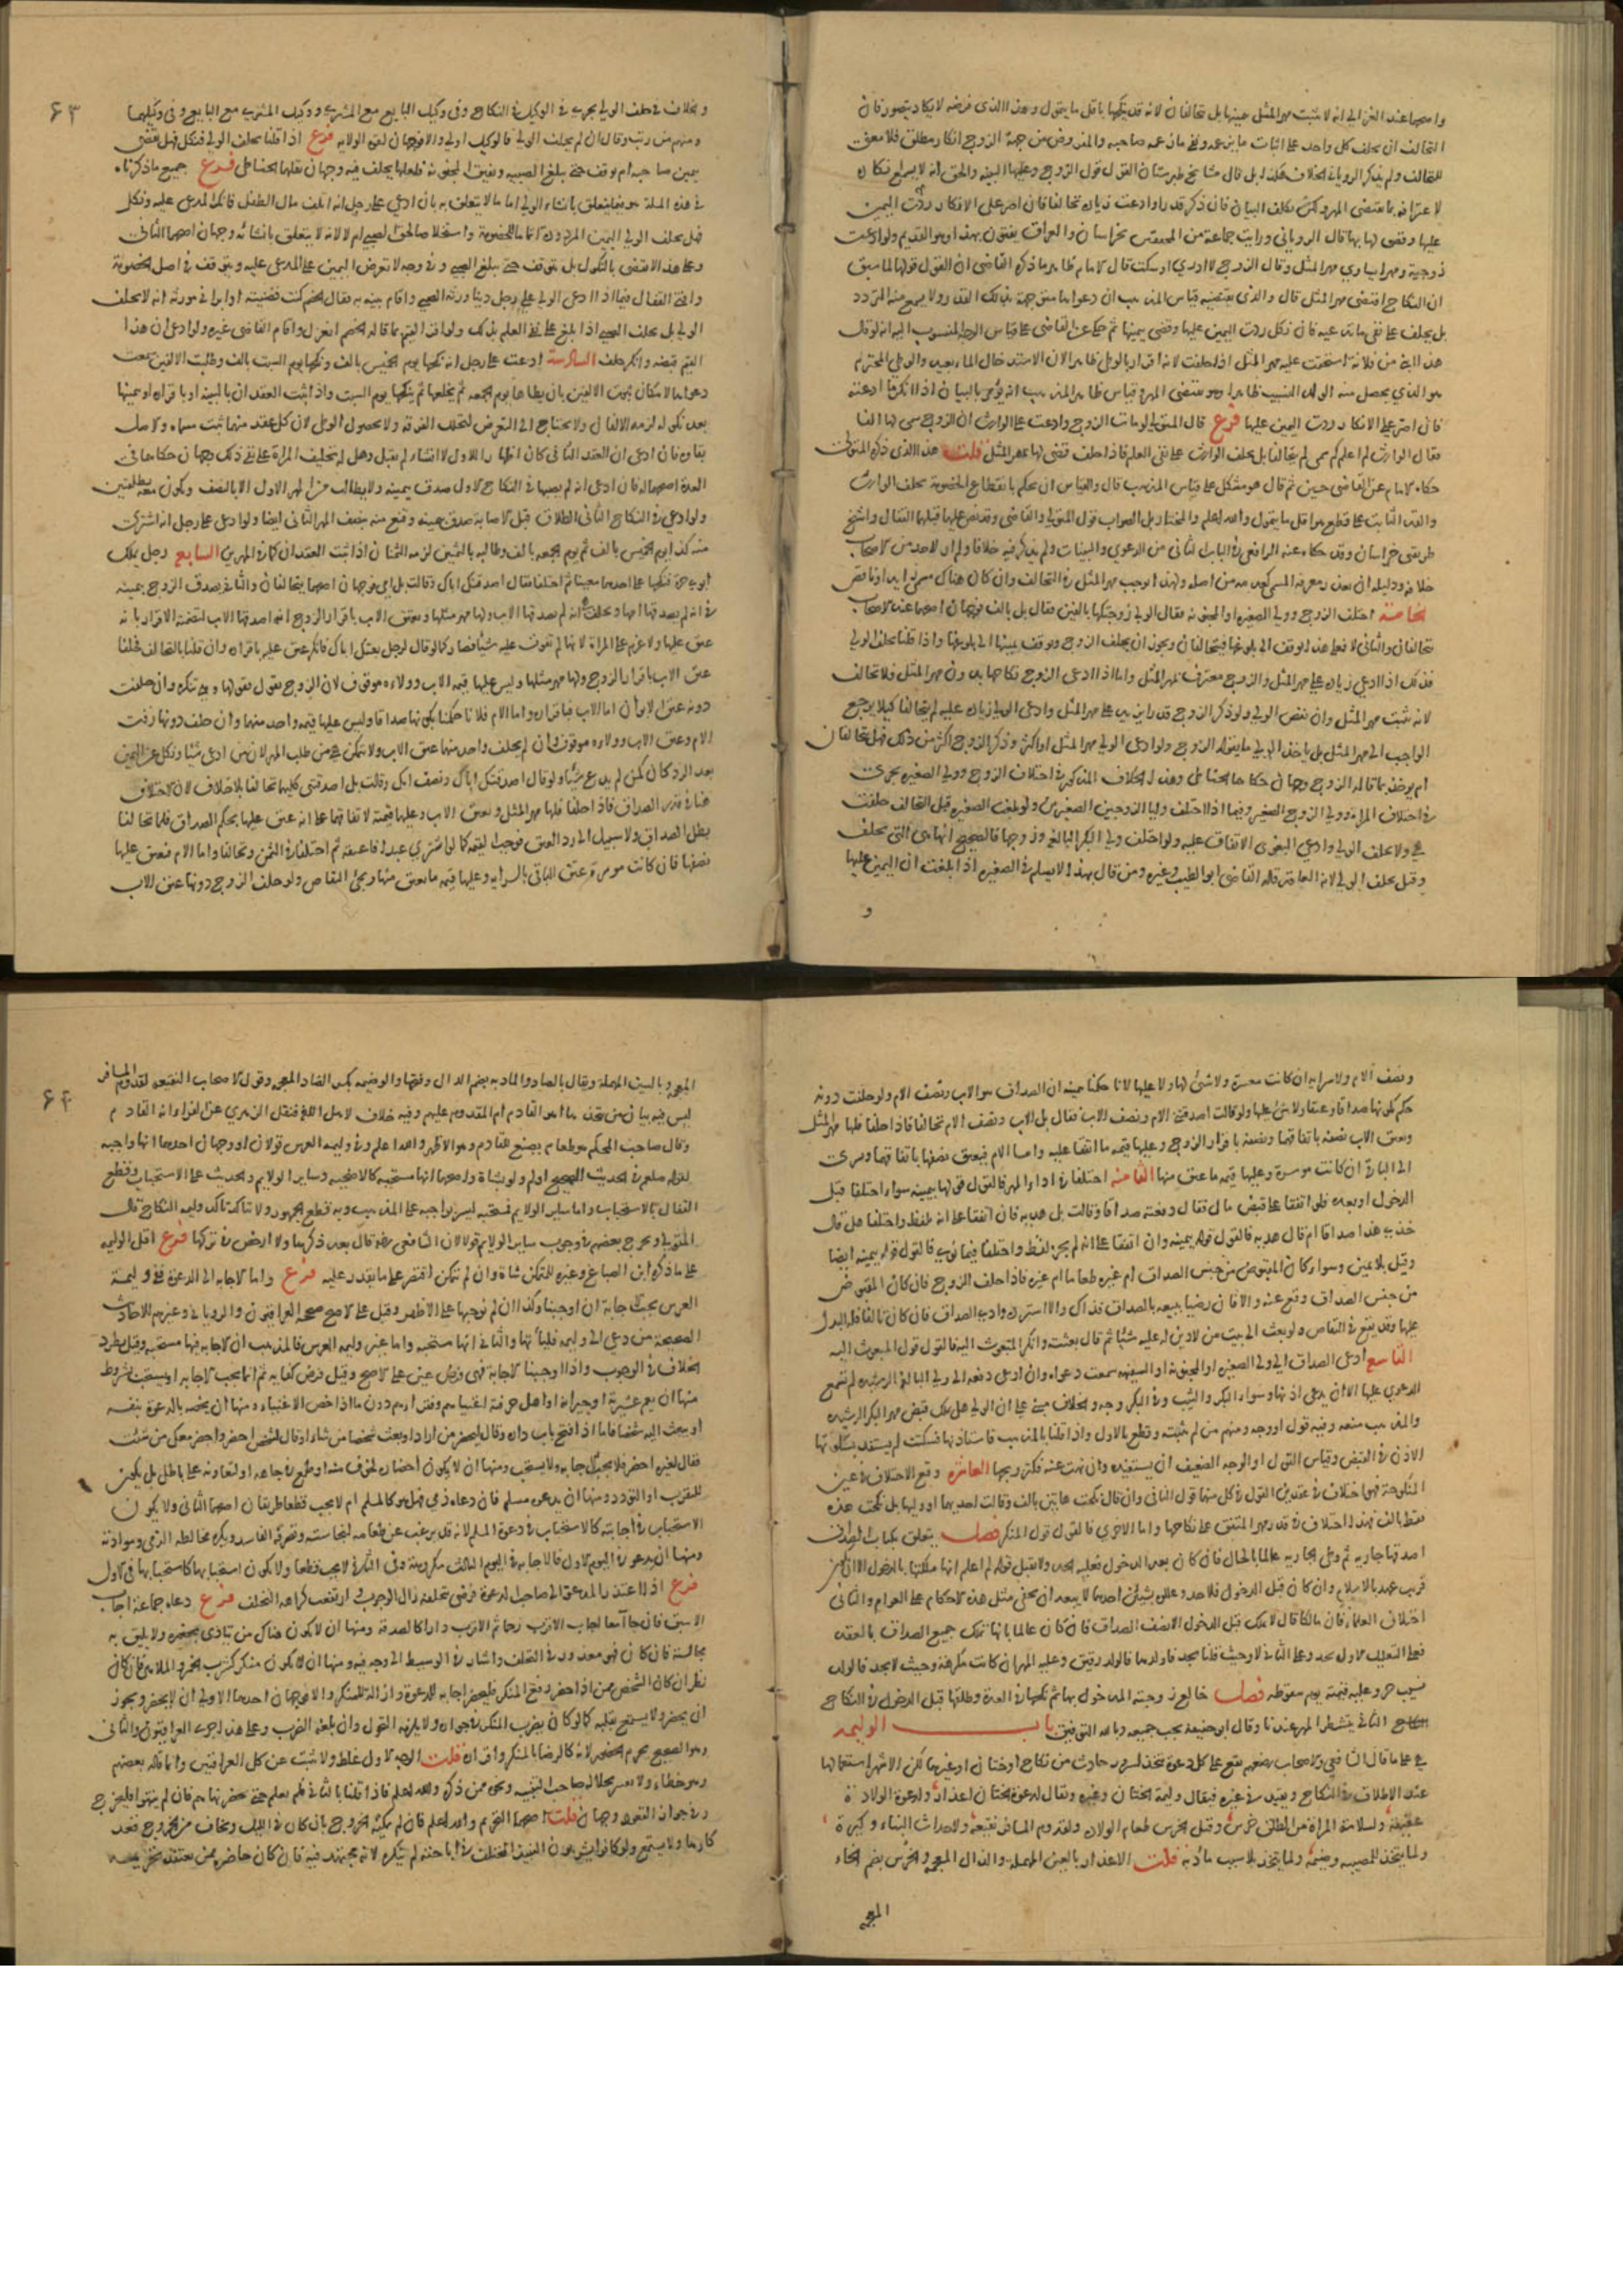 واصحها عند الغزالي انه لا يثبت مهر المثل حينها بل تحالفان لانه قد ينكحها باقل ما يقول وهذا الذي فرضه لا يكاد يتصور فان
التحالف ان يحلف كل واحد على اثبات ما يزعمه ونفي ما يزعمه صاحبه والمفروض من جهة الزوج انكار مطلق فلا معنى
للتحالف ولم يذكر الروياني الخلاف هكذا بل قال مشايخ طبرستان القول قول الزوج وعليها البينه والحق انه لا يسمع انكاره
لاعترافه بما يقتضي المهر ولكن يكلف البيان فان ذكر قدرا وادعت زياده تحالفا فان اصر على الانكار ردت اليمين
عليها وقضي لها بها قال الروياني ورايت جماعة من المحققين بخراسان والعراق يفتون بهذا وهو القديم ولو ادعت
زوجية ومهرا يساوي مهر المثل وقال الزوج لا ادري او سكت قال الامام ظاهر ما ذكره القاضي ان القول قولها لما سبق
ان النكاح اقتضى مهر المثل قال والذي يقتضيه قياس المذهب ان دعواها متوجهة بذلك القدر ولا يسمع منه التردد
بل يحلف على نفي ما تدعيه فان نكل ردت اليمين عليها وقضي بيمينها ثم حكى عن القاضي على قياس الوجه المنسوب اليه انه لو قال
هذا ابني من فلانة استحقت عليه مهر المثل اذا حلفت لانه اقرار بالوطئ ظاهرا لان الاستدخال الماء بعيد والوطئ المحترم
هو الذي يحصل منه الولد النسيب ظاهرا وهو مقتضى المهر وقياس ظاهر المذهب انه يؤمر بالبيان اذا انكر ما ادعته
فان اصر على الانكار ردت اليمين عليها فرع قال المتولي لو مات الزوج وادعت على الوارث ان الزوج سمى لها الفا
فقال الوارث لم اعلم كم سمى لم يتحالفا بل يحلف الوارث على نفي العلم فاذا حلف قضي لها بمهر المثل قلت هذا الذي ذكره المتولي
حكاه الامام عن القاضي حسين ثم قال هو مشكل على قياس المذهب قال والقياس ان يحكم بانقطاع الخصومة بحلف الوارث
والقدر الثابت على قطع هو اقل ما يتمول والله اعلم والمختار بل الصواب قول المتولي والقاضي وقد نص عليها قبلها القفال والشيخ
طريقي خراسان وقد حكاه عنه الرافعي في الباب الثاني من الدعوى والبينات ولم يذكر فيه خلافا ولم ار لاحد من الاصحاب
خلافه ودليله ان تعذر معرفة المسمى كعدمه من اصله ولهذا اوجب مهر المثل في التحالف وان كان هناك مسمى زايد او ناقص
الخامسة اختلف الزوج وولي الصغيره او المجنونه فقال الولي زوجتكها بالفين فقال بل بالف فوجهان اصحهما عند الاصحاب
يتحالفان والثاني لا فعلى هذا يوقف الى بلوغها فيتحالفان ويجوز ان يحلف الزوج ويوقف يمينها الى بلوغها واذا قلنا يحلف الولي
فذلك اذا ادعى زياده على مهر المثل والزوج معترف بمهر المثل واما اذا ادعى الزوج نكاحها بدون مهر المثل فلا تحالف
لانه يثبت مهر المثل وان نقص الولي ولو ذكر الزوج قدرا يزيد على مهر المثل وادعى الولي زياده عليه لم يتحالفا كيلا يرجع
الواجب الى مهر المثل بل ياخذ الولي ما يقوله الزوج ولو ادعى الولي مهر المثل او اكثر وذكر الزوج اكثر من ذلك فهل يتحالفان
ام يوخذ بما قاله الزوج وجهان حكاهما الحناطي وهذا الخلاف المذكور في اختلاف الزوج وولي الصغيره يجري
في اختلاف المراة وولي الزوج الصغير وفيما اذا اختلف وليا الزوجين الصغيرين ولو بلغت الصغيره قبل التحالف حلفت
هي ولا يحلف الولي وادعى البغوي الاتفاق عليه ولو اختلف ولي البكر البالغ وزوجها فالصحيح انها هي التي تحلف
وقيل يحلف الولي لانه العاقد قاله القاضي ابو الطيب وغيره ومن قال بهذا لا يسلم في الصغيره اذا بلغت ان اليمين عليها
و
٦٣
والخلاف في حلف الولي يجري في الوكيل في النكاح وفي وكيل البايع مع المشتري ووكيل المشتري مع البايع وفي وكيليهما
ومنهم من رتب وقال ان لم يحلف الولي فالوكيل اولى والا فوجهان لقوة الولايه فرع اذا قلنا يحلف الولي فنكل فهل يقضى
بيمين صاحبه ام يوقف حتى يبلغ الصبيه وتفيق المجنونه فلعلها يحلف فيه وجهان نقلهما الحناطي فرع جميع ما ذكرناه
في هذه المسلة هو فيما يتعلق بانشاء الولي اما ما لا يتعلق به بان ادعى على رجل انه اتلف مال الطفل فانكر المدعى عليه ونكل
فهل يحلف الولي اليمين المردودة اتماما للخصومة واستخلاصا لحق الصبي ام لا لانه لا يتعلق بانشائه وجهان اصحهما الثاني
وعلى هذا لا يقضى بالنكول بل يتوقف حتى يبلغ الصبي وفي وجه لا تعرض اليمين على المدعى عليه ويتوقف في اصل الخصومة
وافتى القفال فيما اذا ادعى الولي على رجل دينا ورثه الصبي واقام بينه به فقال الخصم كنت قضيته او ابراني مورثه انه لا يحلف
الولي بل يحلف الصبي اذا بلغ على نفي العلم بذلك ولو اقر القيم بما قاله الخصم انعزل واقام القاضي غيره ولو ادعى ان هذا
القيم قبضه وانكر حلف السادسة ادعت على رجل انه نكحها يوم الخميس بالف ونكحها يوم السبت بالف وطلبت الالفين سمعت
دعواها لامكان ثبوت الالفين بان يطاها يوم الجمعه ثم يخلعها ثم ينكحها يوم السبت واذا ثبت العقدان بالبينه او باقراره او يمينها
بعد نكوله لزمه الالفان ولا يحتاج الى التعرض لتخلل الفرقه ولا لحصول الوطئ لان كل عقد منهما ثبت مسماه والاصل
بقاوه فان ادعى ان العقد الثاني كان اظهارا للاول لا انشاء لم يقبل وهل له تحليف المراة على نفي ذلك وجهان حكاهما في
العدة اصحهما له فان ادعى انه لم يصبها في النكاح الاول صدق بيمينه ولا يطالب من المهر الاول الا بالنصف
ولو ادعى في النكاح الثاني الطلاق قبل الاصابة صدق بيمينه وقنع منه بنصف المهر الثاني ايضا ولو ادعى على رجل انه اشترى
منه كذا يوم الخميس بالف ثم يوم الجمعه بالف وطالبه بالثمنين لزمه الثمنان اذا ثبت العقدان كما في المهرين السابع رجل يملك
ابوي حرة فنكحها على احدهما معينا ثم اختلفا فقال اصدقتك اباك وقالت بل امي فوجهان اصحهما يتحالفان والثاني يصدق الزوج بيمينه
في انه لم يصدقها امها وتحلف انه لم يصدقها الاب ولها مهر مثلها ويعتق الاب باقرار الزوج انه اصدقها الاب لتضمنه الاقرار بانه
عتق عليها ولا غرم على المراة لانها لم تفوت عليه شيئا فصار كما لو قال لرجل بعتك اباك فانكر عتق عليه باقراره وان قلنا بالتحالف فحلفا
عتق الاب باقرار الزوج ولها مهر مثلها وليس عليها قيمه الاب وولاءه موقوف لان الزوج يقول هو لها وهي تنكره وان حلفت
دونه عتق الابوان اما الاب فباقراره واما الام فلانا حكمنا بكونها صداقا وليس عليها قيمه واحد منهما وان حلف دونها رقت
الام وعتق الاب وولاوه موقوف وان لم يحلف واحد منهما عتق الاب ولا تتمكن هي من طلب المهر لان من ادعى شيئا ونكل عن اليمين
بعد الرد كان كمن لم يدع شيئا ولو قال اصدقتك اباك ونصف امك وقالت بل اصدقتني كليهما تحالفا بلا خلاف لان الاختلاف
هنا في قدر الصداق فاذا حلفا فلها مهر المثل ويعتق الاب وعليها قيمته لاتفاقهما على انه عتق عليها بحكم الصداق فلما تحالفا
بطل الصداق ولا سبيل الى رد العتق فوجبت القيمه كما لو اشترى عبدا فاعتقه ثم اختلفا في الثمن وتحالفا واما الام فيعتق عليها
نصفها فان كانت موسرة عتق الباقي بالسرايه وعليها قيمه ما يعتق منها ويجئ التقاص ولو حلف الزوج دونها عتق الاب
ونصف الام ولا سرايه ان كانت معسرة ولا شئ لها ولا عليها لانا حكمنا بيمينه ان الصداق هو الاب ونصف الام ولو حلفت دونه
حكم بكونهما صداقا وعتقا ولا شئ عليها ولو قالت اصدقتني الام ونصف الاب فقال بل الاب ونصف الام تحالفا فاذا حلفا فلها مهر المثل
ويعتق الاب نصفه باتفاقهما ونصفه باقرار الزوج وعليها قيمه ما اتفقا عليه واما الام فيعتق نصفها باتفاقهما ويسري
الى الباقي ان كانت موسرة وعليها قيمه ما عتق منها الثامنه اختلفا في اداء المهر فالقول قولها بيمينها سواء اختلفا قبل
الدخول او بعده فلو اتفقا على قبض مال فقال دفعته صداقا وقالت بل هديه فان اتفقا على انه تلفظ واختلفا هل قال
خذيه هذا صداقا ام قال هديه فالقول قوله بيمينه وان اتفقا على انه لم يجر لفظ واختلفا فيما نوى فالقول قوله بيمينه ايضا
وقيل بلا يمين وسواء كان المقبوض من جنس الصداق ام غيره طعاما ام غيره فاذا حلف الزوج فان كان المقبوض
من جنس الصداق وقع عنه والا فان رضيا ببيعه بالصداق فذاك والا استرده وادى الصداق فان كان تالفا فله البدل
عليها وقد يقع في التقاص ولو بعث الى بيت من لا دين له عليه شيئا ثم قال بعثته وانكر المبعوث اليه فالقول قول المبعوث اليه
التاسع ادعى الصداق الى ولي الصغيره او المجنونه او السفيهه سمعت دعواه وان ادعى دفعه الى ولي البالغة الرشيده لم تسمع
الدعوى عليها الا ان يدعي اذنها وسواء البكر والثيب وفي البكر وجه والخلاف مبني على ان الولي هل يملك قبض مهر البكر الرشيده
والمذهب منعه وفيه قول او وجه ومنهم من لم يثبته وقطع بالاول واذا قلنا بالمذهب فاستاذنها فسكتت لم يستفد بسكوتها
الاذن في القبض وقياس القول او الوجه الضعيف ان يستفيده وان نهت عنه فكتزويجها العاشره وقع الاختلاف في عين
المنكوحة فهو اختلاف في عقدين القول في كل منهما قول النافي وان قال نكحت هاتين بالف وقالت احديهما او وليها بل نكحت هذه
فقط بالف فهذا اختلاف في قدر مهر المتفق على نكاحها واما الاخرى فالقول قول المنكر فصل يتعلق بكتاب الصداق
اصدقها جارية ثم وطئ الجارية عالما بالحال فان كان بعد الدخول فعليه الحد ولا يقبل قوله لم اعلم انها ملكتها بالدخول الا ان يكون
قريب عهد بالاسلام وان كان قبل الدخول فلا حد وعللوه بشيئين احدهما لا يبعد ان يخفى مثل هذه الاحكام على العوام والثاني
اختلاف العلماء فان مالكا قال لا يملك قبل الدخول الا نصف الصداق فان كان عالما بانها تملك جميع الصداق بالعقد
فعلى التعليل الاول يحد وعلى الثاني لا وحيث قلنا يحد فاولدها فالولد رقيق وعليه المهر ان كانت مكرهة وحيث لا يحد فالولد
نسيب حر وعليه قيمته يوم سقوطه فصل خالع زوجته المدخول بها ثم نكحها في العدة وطلقها قبل الدخول في النكاح
الثاني يتشطر المهر عندنا وقال ابو حنيفة يجب جميعه وبالله التوفيق باب الوليمه
هي على ما قال الشافعي والاصحاب رضي عنهم تقع على كل دعوة تتخذ لسرور حادث من نكاح او ختان او غيرهما لكن الاشهر استعمالها
عند الاطلاق في النكاح ويقيد في غيره فيقال وليمة الختان وغيره ويقال لدعوة الختان اعذار ولدعوة الولادة
عقيقة ولسلامة المراة من الطلق خرس وقيل الخرس طعام الولاده ولقدوم المسافر نقيعة ولاحداث البناء وكيرة
ولما يتخذ للمصيبه وضيمة ولما يتخذ بلا سبب مأدبه قلت الاعذار بالعين المهملة والذال المعجمه والخرس بضم الخاء
المعجمه
٦٤
المعجمه وبالسين المهملة ويقال بالصاد والمادبه بضم الدال وفتحها والوضيمه بكسر الضاد المعجمه وقول الاصحاب النقيعه لقدوم المسافر
ليس فيه بيان من يتخذها اهو القادم ام المقدوم عليهم وفيه خلاف لاهل اللغه فنقل الازهري عن الفراء انه القادم
وقال صاحب المحكم هو طعام يصنع للقادم وهو الاظهر والله اعلم وفي وليمه العرس قولان او وجهان احدهما انها واجبه
لقوله صلعم في الحديث الصحيح اولم ولو بشاة واصحهما انها مستحبه كالاضحيه وساير الولايم والحديث على الاستحباب وقطع
القفال بالاستحباب واما ساير الولايم فمستحبه ليس بواجبه على المذهب وبه قطع الجمهور ولا تتاكد تاكد وليمه النكاح قال
المتولي وخرج بعضهم في وجوب ساير الولايم قولا لان الشافعي رضه قال بعد ذكرها ولا ارخص في تركها فرع اقل الوليمه
على ما ذكره ابن الصباغ وغيره للمتمكن شاة وان لم يتمكن اقتصر على ما يقدر عليه فرع واما الاجابه الى الدعوة ففي وليمة
العرس تجب الاجابة ان اوجبناها وكذا ان لم نوجبها على الاظهر وقيل على الاصح صححه العراقيون والروياني وغيرهم للاحاديث
الصحيحة من دعي الى وليمه فلياتها والثاني انها مستحبه واما غير وليمه العرس فالمذهب ان الاجابه فيها مستحبه وقيل بطرد
الخلاف في الوجوب واذا اوجبنا الاجابة فهي فرض عين على الاصح وقيل فرض كفايه ثم انما يجب الاجابه او يستحب بشروط
منها ان يعم عشيرته او جيرانه او اهل حرفته اغنياءهم وفقراءهم دون ما اذا خص الاغنياء ومنها ان يخصه بالدعوة بنفسه
او يبعث اليه شخصا فاما اذا فتح باب داره وقال ليحضر من اراد او بعث شخصا من شاء او قال لشخص احضر واحضر معك من شئت
فقال لغيره احضر فلا يجب الاجابه ولا يستحب ومنها ان لا يكون احضاره لخوف منه او طمع في جاهه او لتعاونه على باطل بل يكون
للتقرب او التودد ومنها ان يدعوه مسلم فان دعاه ذمي فهل هو كالمسلم ام لا يجب قطعا طريقان اصحهما الثاني ولا يكون
الاستحباب في اجابته كالاستحباب في دعوة المسلم لانه قد يرغب عن طعامه لنجاسته وتصرفه الفاسد ويكره مخالطه الذمي وموادته
ومنها ان يدعوه في اليوم الاول فالاجابه في اليوم الثالث مكروهة وفي الثاني لا يجب قطعا ولا يكون استحبابها كاستحبابها في الاول
فرع اذا اعتذر المدعو الى صاحب الدعوة فرضي بتخلفه زال الوجوب وارتفعت كراهه التخلف فرع دعاه جماعة اجاب
الاسبق فان جاآ معا اجاب الاقرب رحما ثم الاقرب دارا كالصدقة ومنها ان لا يكون هناك من يتاذى بحضوره ولا يليق به
مجالسته فان كان فهو معذور في التخلف واشار في الوسيط الى وجه فيه ومنها ان لا يكون منكر كشرب الخمر والملاهي فان كان
نظر ان كان الشخص ممن اذا حضر رفع المنكر فليحضر اجابه للدعوة وازالة للمنكر والا فوجهان احدهما الاولى ان لا يحضر ويجوز
ان يحضر ولا يستمع بقلبه كما لو كان بضرب المنكر في جواره ولا يلزمه التحول وان بلغه الضرب وعلى هذا جرى العراقيون والثاني
وهو الصحيح يحرم الحضور لانه كالرضا بالمنكر واقراره قلت الوجه الاول غلط ولا يثبت عن كل العراقيين وانما قاله بعضهم
وهو خطا ولا يغتر بجلالة صاحب التنبيه ونحوه ممن ذكره والله اعلم فاذا قلنا بالثاني فلم يعلم حتى حضر نهاهم فان لم ينتهوا فليخرج
وفي جواز القعود وجهان قلت اصحهما التحريم والله اعلم فان لم يمكنه الخروج بان كان في الليل ويخاف من الخروج قعد
كارها ولا يستمع ولو كانوا يشربون النبيذ المختلف في اباحته لم ينكره لانه مجتهد فيه فان كان حاضره ممن يعتقد تحريمه